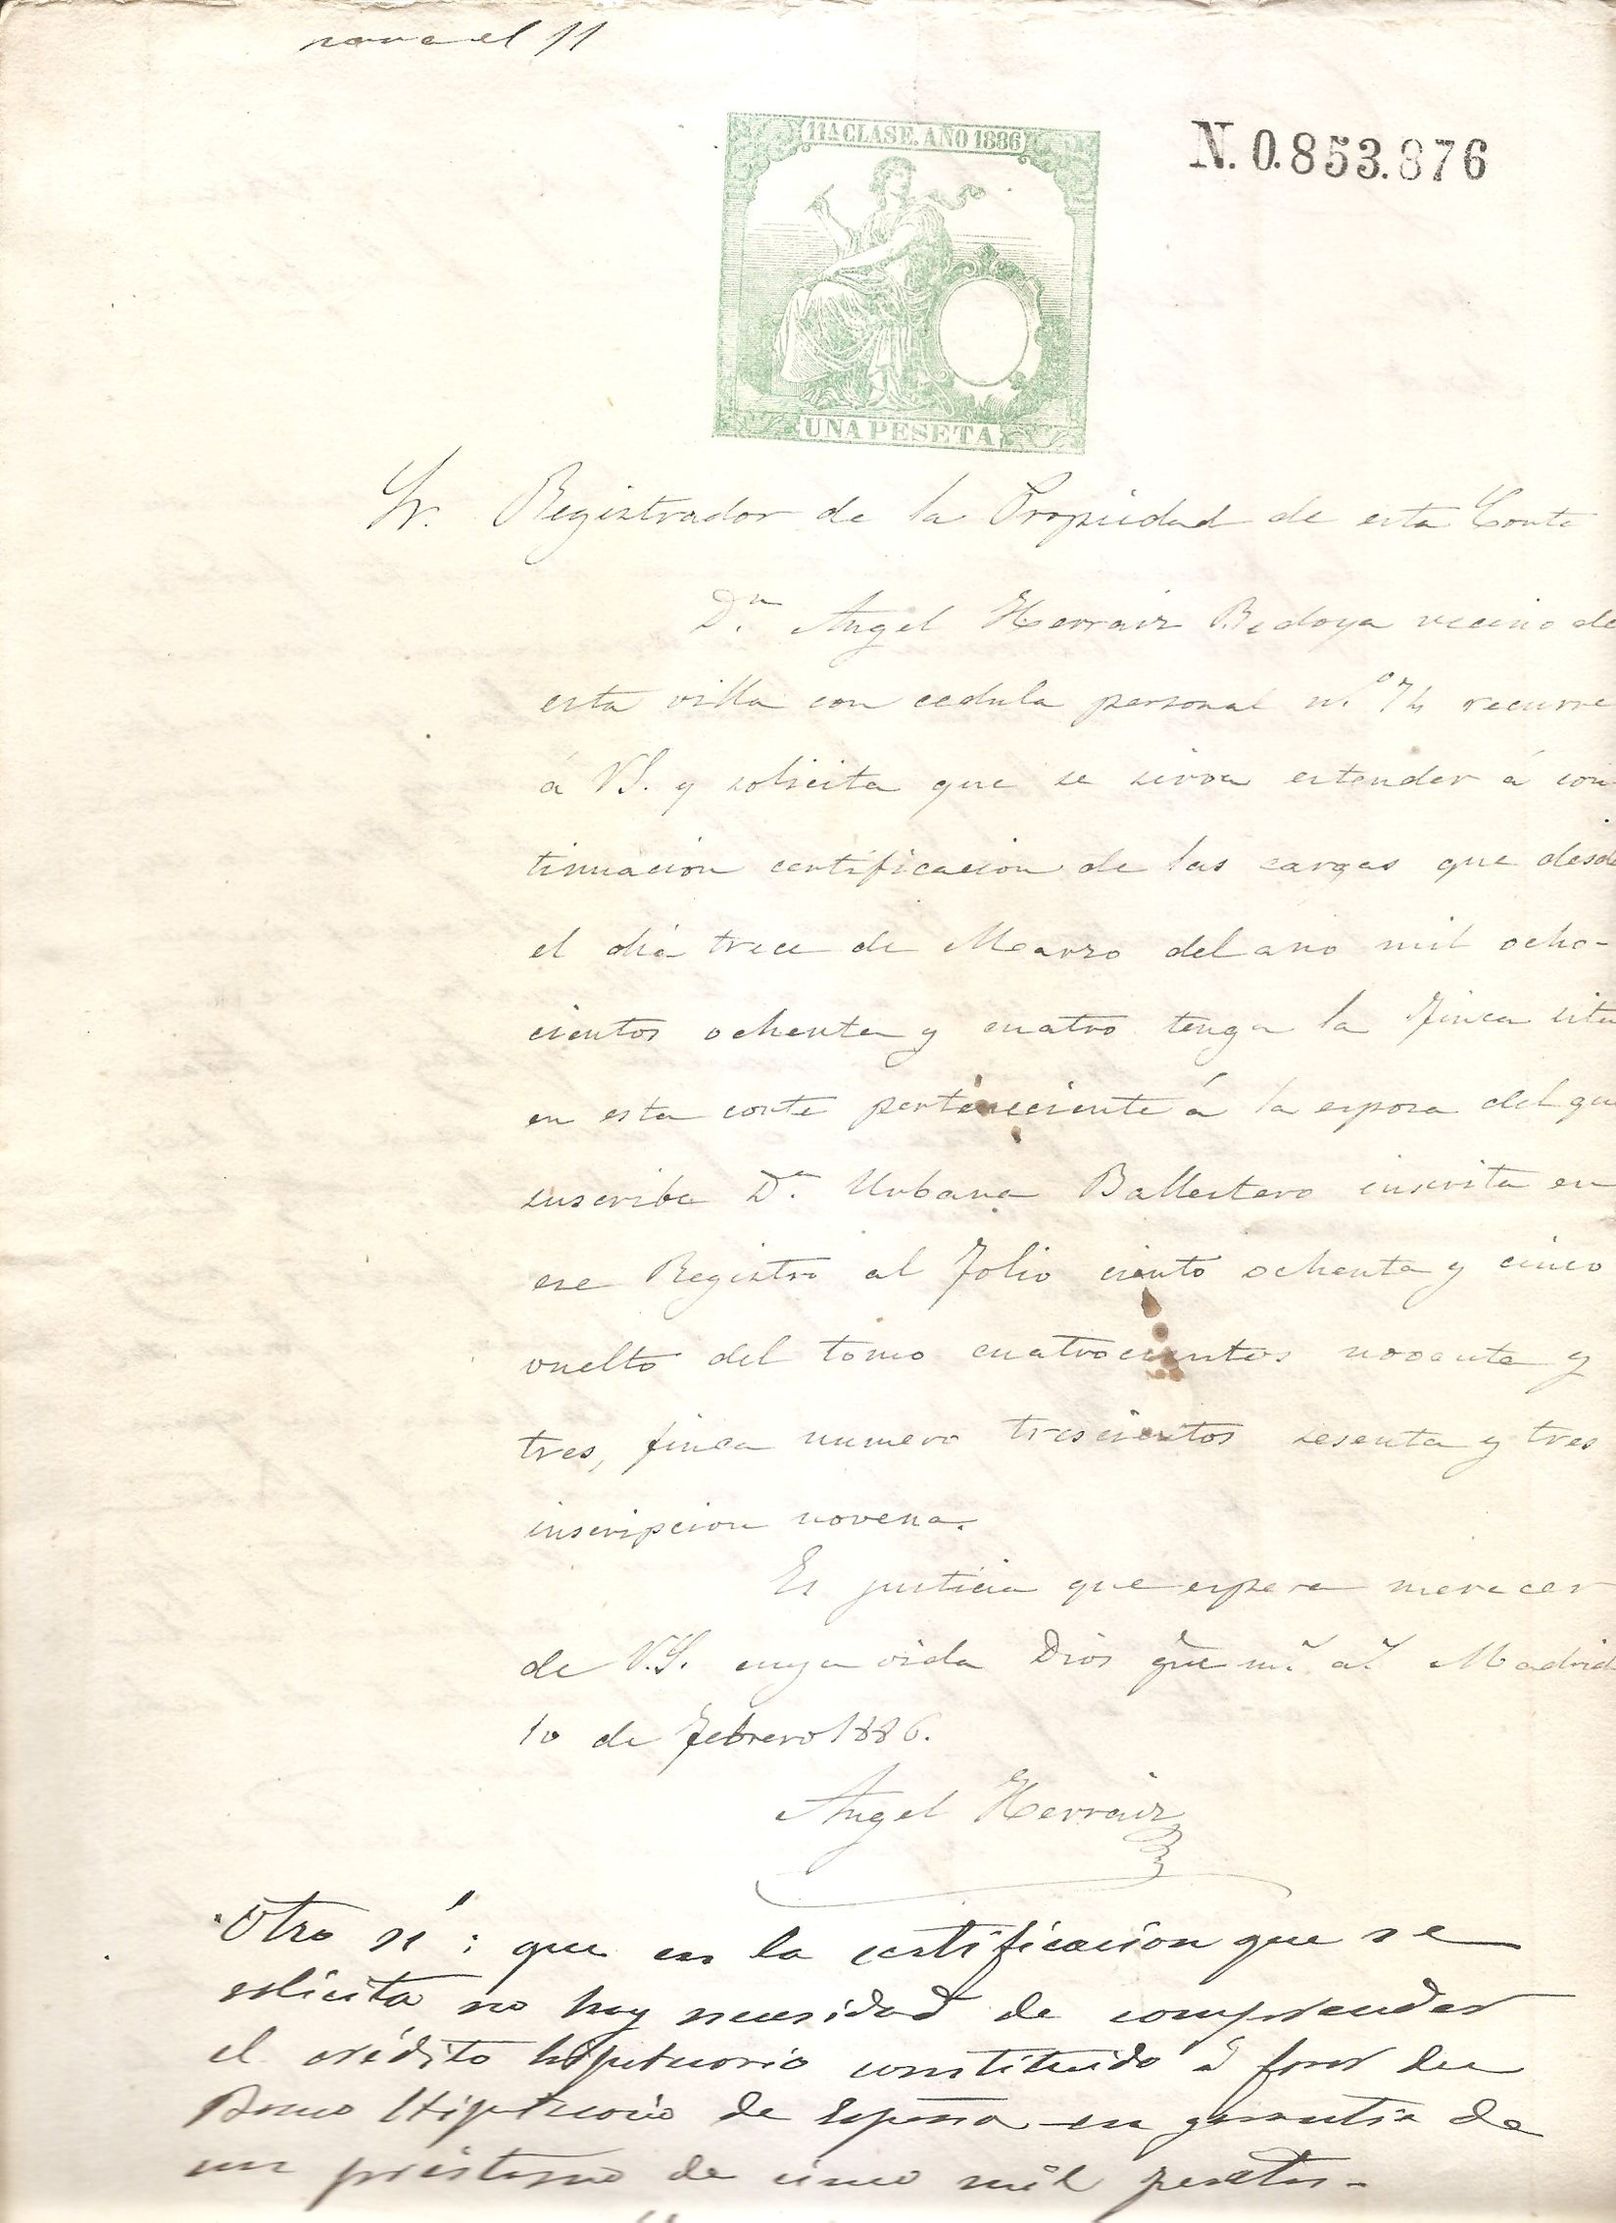 para el 11
11ª CLASE. AÑO 1886
N. 0.853.876
UNA PESETA
Sr. Registrador de la Propiedad de esta Corte
Dn. Angel Herraiz Bedoya vecino de
esta villa con cedula personal n.º 74 recurre
á VS. y solicita que se sirva estender á con
tinuacion certificacion de las cargas que desde
el dia trece de Marzo del año mil ocho-
cientos ochenta y cuatro tenga la finca sita
en esta corte perteneciente á la esposa del que
suscribe Dª. Urbana Ballestero inscrita en
ese Registro al folio ciento ochenta y cinco
vuelto del tomo cuatrocientos noventa y
tres, finca numero trescientos sesenta y tres
inscripcion novena.
Es justicia que espera merecer
de V.S. cuya vida Dios gue m.s a.s Madrid
10 de Febrero 1886.
Angel Herraiz
Otro sí: que en la certificacion que se
solicita no hay necesidad de comprender
el crédito hipotecario constituido á favor del
Banco Hipotecario de España en garantia de
un préstamo de cinco mil pesetas.-